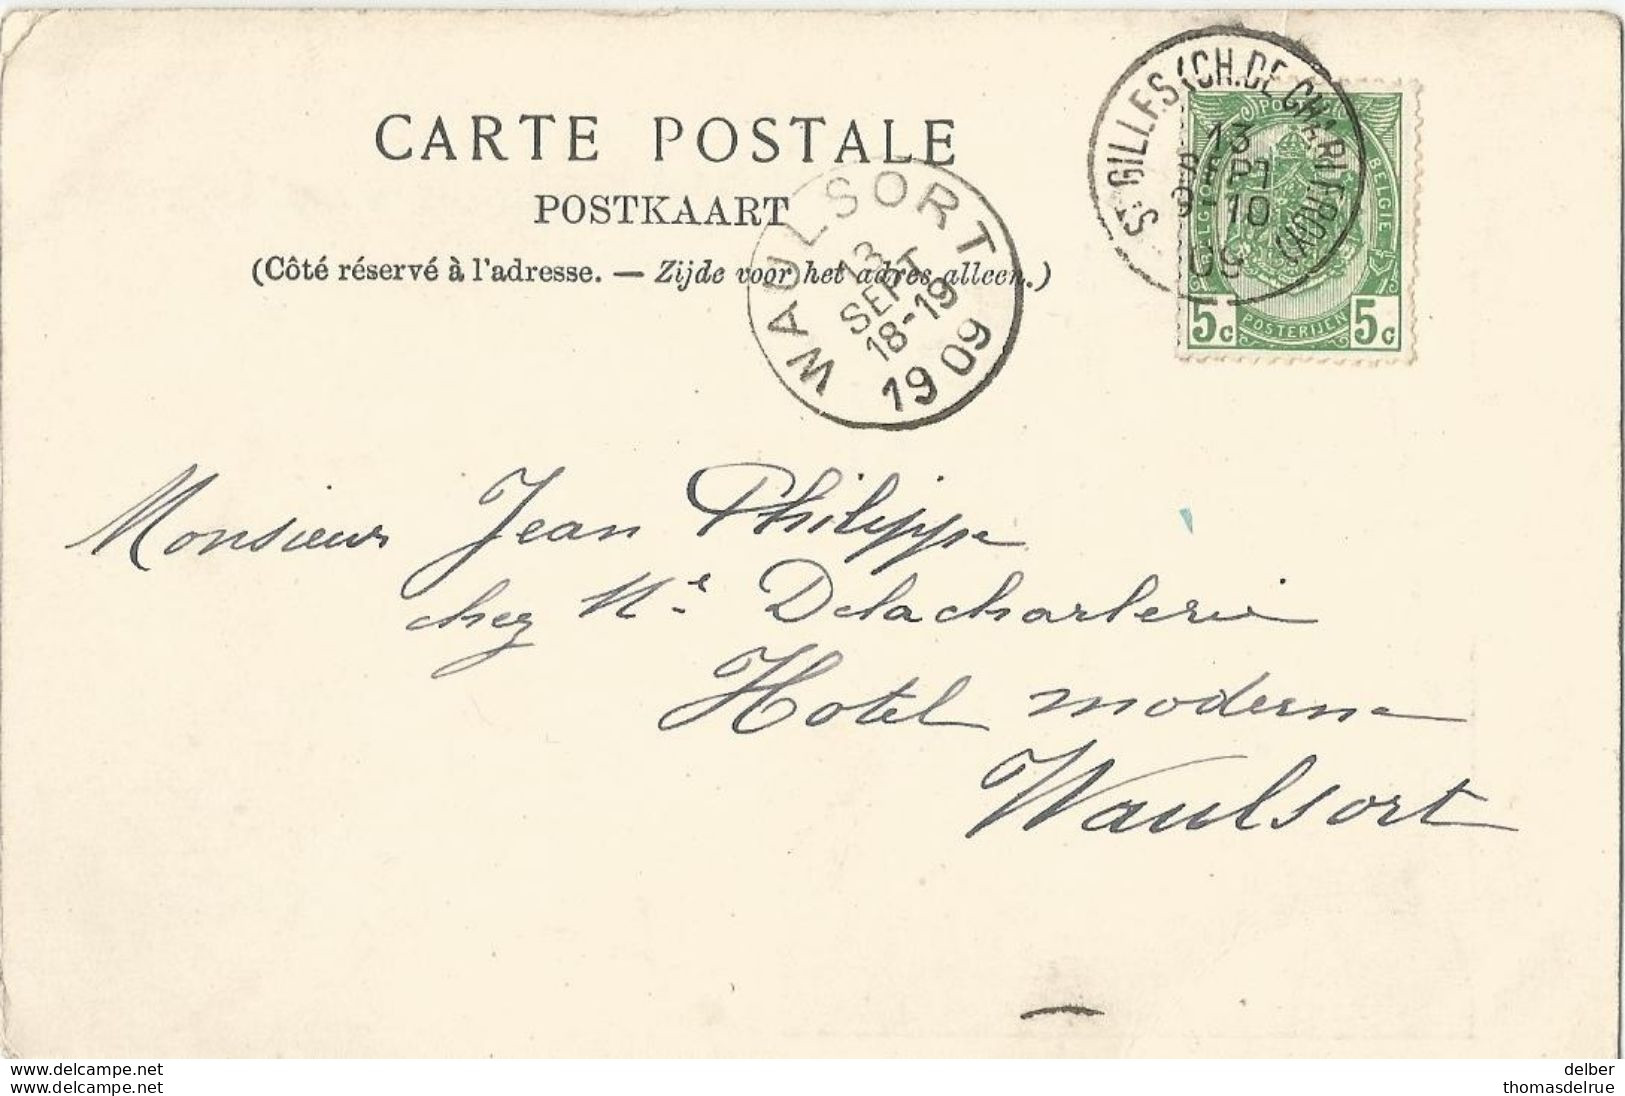 CARTE POSTALE
POSTKAART
(Côté réservé à l'adresse. — Zijde voor het adres alleen.)
WAULSORT
13
SEPT
18-19
1909
ST GILLES (CH. DE CHARLEROI)
13
SEPT
10
09
BELGIE
5c POSTERIJEN 5c
Monsieur Jean Philippe
chez Mr. Delacharlerie
Hotel moderne
Waulsort
www.delcampe.net
delcampe.net
delber
thomasdelrue